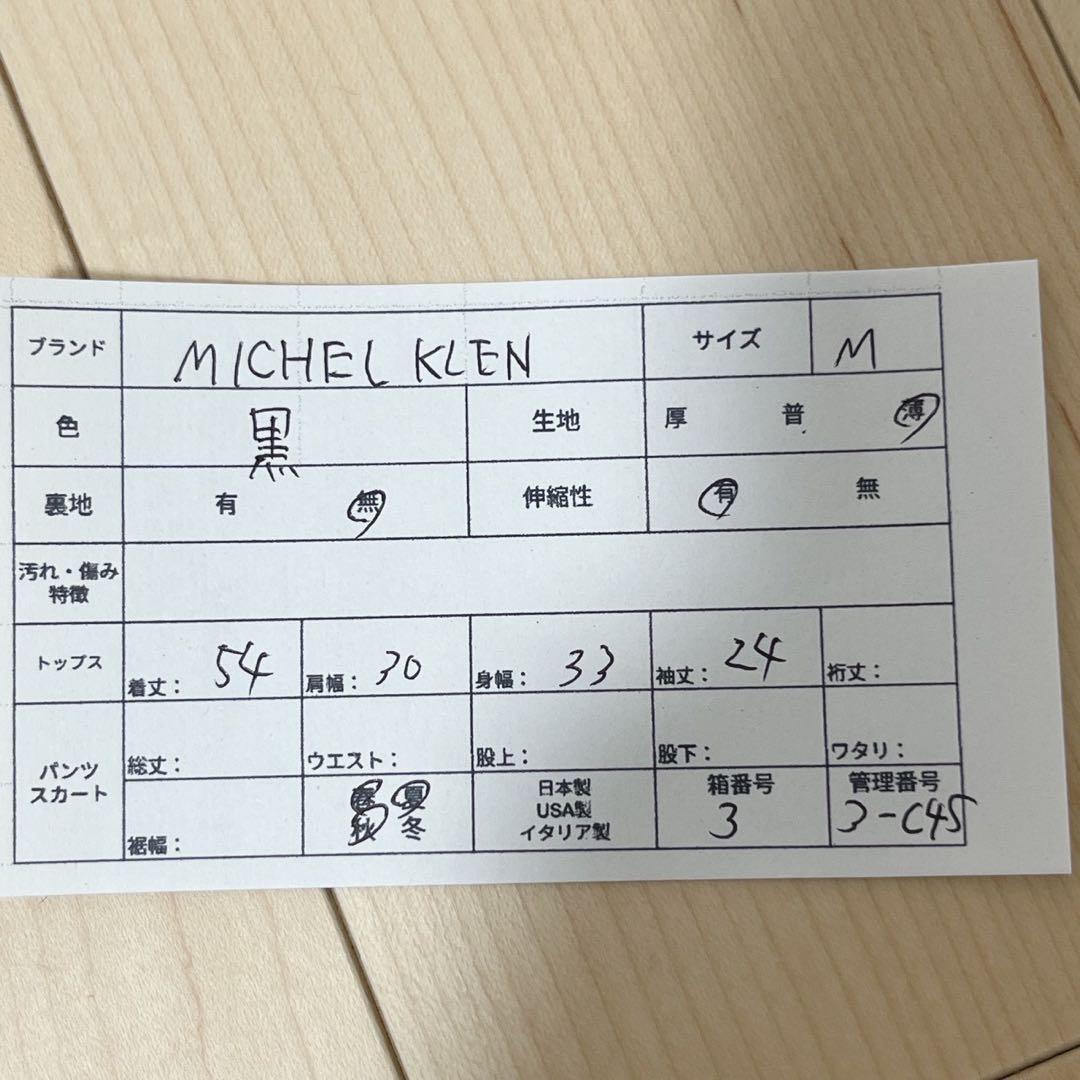 ブランド MICHEL KLEN サイズ M
色 黒 生地 厚 普 薄
裏地 有 無 伸縮性 有 無
汚れ・傷み
特徴
トップス 着丈: 54 肩幅: 30 身幅: 33 袖丈: 24 裄丈:
パンツ
スカート
総丈: ウエスト: 股上: 股下: ワタリ:
裾幅:
春 夏
秋 冬
日本製
USA製
イタリア製
箱番号
3
管理番号
3-C45